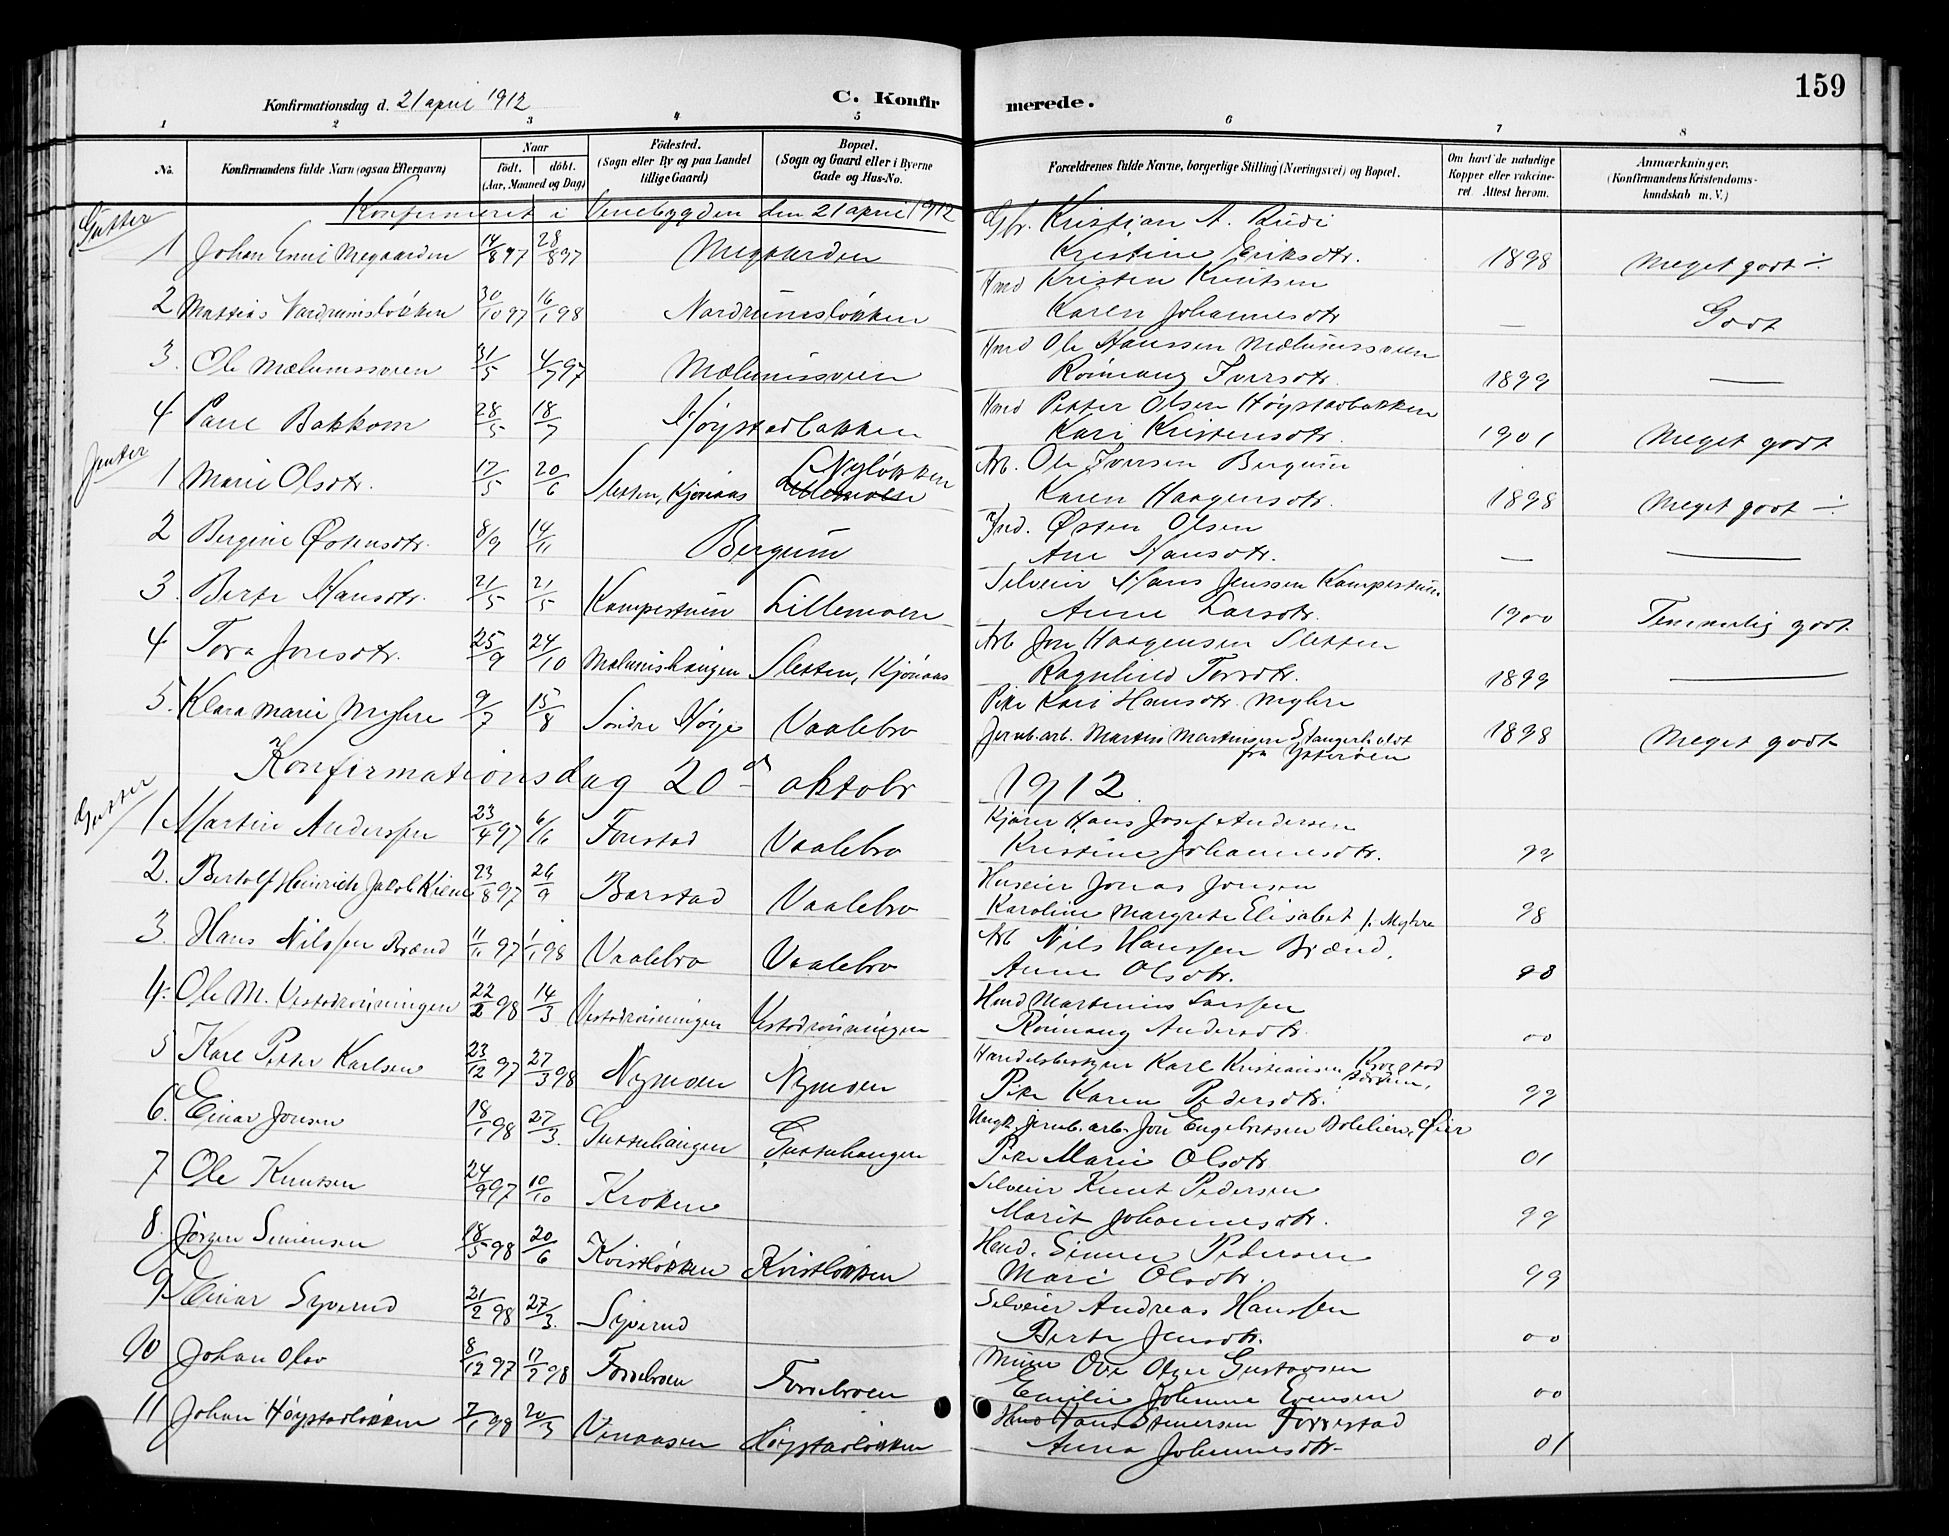 159
Konfirmationsdag d. 21 april 1912
C. Konfirmerede.
1 2 3 4 5 6 7 8
No.
Konfirmandens fulde Navn (ogsaa Efternavn)
Naar
födt. döbt.
(Aar, Maaned og Dag)
Födested.
(Sogn eller By og paa Landet
tillige Gaard)
Bopæl.
(Sogn og Gaard eller i Byerne
Gade og Hus-No.
Forældrenes fulde Navne, borgerlige Stilling (Næringsvei) og Bopæl.
Om havt de naturlige
Kopper eller vakcineret. Attest herom.
Anmærkninger.
(Konfirmandens Kristendomskundskab m. V.)
Konfirmeret i Venebygden den 21 april 1912
Gutter
1 Johan Emil Megaarden 14/8 97 28/8 97 Megaarden Gbr. Kristian A. Rudi
Kristine Eriksdtr. 1898 Meget godt ÷
2 Mattias Nordrumsløkken 30/10 97 16/1 98 Nordrumsløkken Hmd Kristen Knutsen
Karen Johannesdtr — Godt
3. Ole Mælumssveen 31/5 4/7 97 Mælumssveen Hmd Ole Hanssen Mælumssveen
Rønnaug Iversdtr. 1899 —
4 Paul Bakkom 28/5 18/7 Høystadbakken Hmd Petter Olsen Høystadbakken
Kari Kristensdtr. 1901 Meget godt
Jenter
1 Marie Olsdtr. 17/5 20/6 Sletten, Kjønaas Nyløkken Lillemoen Arb. Ole Iversen Bergum
Karen Haagensdtr. 1898 Meget godt ÷
2 Bergine Østensdtr. 8/9 14/11 Bergum Ind. Østen Olsen
Ane Hansdtr. — —
3. Berte Hansdtr. 21/5 21/5 Kampestuen Lillemoen Selveier Hans Jenssen Kampestuen
Anne Larsdtr. 1900 Temmelig godt
4 Tora Jonsdtr. 25/9 24/10 Mælumshaugen Sletten, Kjønaas Arb Jon Haagensen Sletten
Ragnhild Torsdtr. 1899 —
5. Klara Marie Myhre 9/7 15/8 Søndre Høge Vaalebro Pike Kari Hansdtr. Myhre
Jernb.arb. Martin Martinsen Stangerholdt
fra Ytterøen 1898 Meget godt
Konfirmationsdag 20de oktobr 1912.
Gutter
1 Martin Anderssen 23/4 97 6/6 Fonstad Vaalebro Kjører Hans Josef Andersen
Kristine Johannesdtr. 99
2. Bertolf Heinrich Jakob Kiene 23/8 97 26/9 Barstad Vaalebro Huseier Jonas Jonsen
Karoline Margrete Elisabet f. Myhre 98
3. Hans Nilssen Brænd 11/11 97 1/1 98 Vaalebro Vaalebro Arb Nils Hanssen Brænd.
Anne Olsdtr. 98
4. Ole M. Vestadrønningen 22/2 98 14/3 Vestadrønningen Vestadrønningen Hmd Martinus Larssen
Rønnaug Andersdtr. 00
5 Karl Petter Karlsen 23/12 97 27/3 98 Nymoen Nymoen Handelsbestyrer Karl Kristiansen
Pike Karen Pedersdtr. 99
6. Einar Jonsen 18/1 98 27/3. Guttuhaugen Guttuhaugen Ungk. jernb.arb. Jon Engebretsen Dolelien, Øier
Pike Marie Olsdtr 01
7 Ole Knutsen 24/9 97 10/10 Kroken Selveier Knut Pedersen
Marit Johannesdtr. 99
8. Jørgen Simensen 18/5 98 20/6 Kvistløkken Kvistløkken Hmd. Simen Pedersen
Mari Olsdtr. 99
9 Einar Syverud 21/2 98 27/3. Syverud Selveier Andreas Hanssen
Berte Jensdtr. 00
10 Johan Olav 8/12 97 17/2 98 Fossebroen Fossebroen Murer Ove Olger Gustavsen
Emilie Johanne Evensen 00
11 Johan Høystadløkken 7/1 98 20/3 Venaasen Høystadløkken Hmd Hans Stenersen Torrestad
Anna Johannesdtr 01